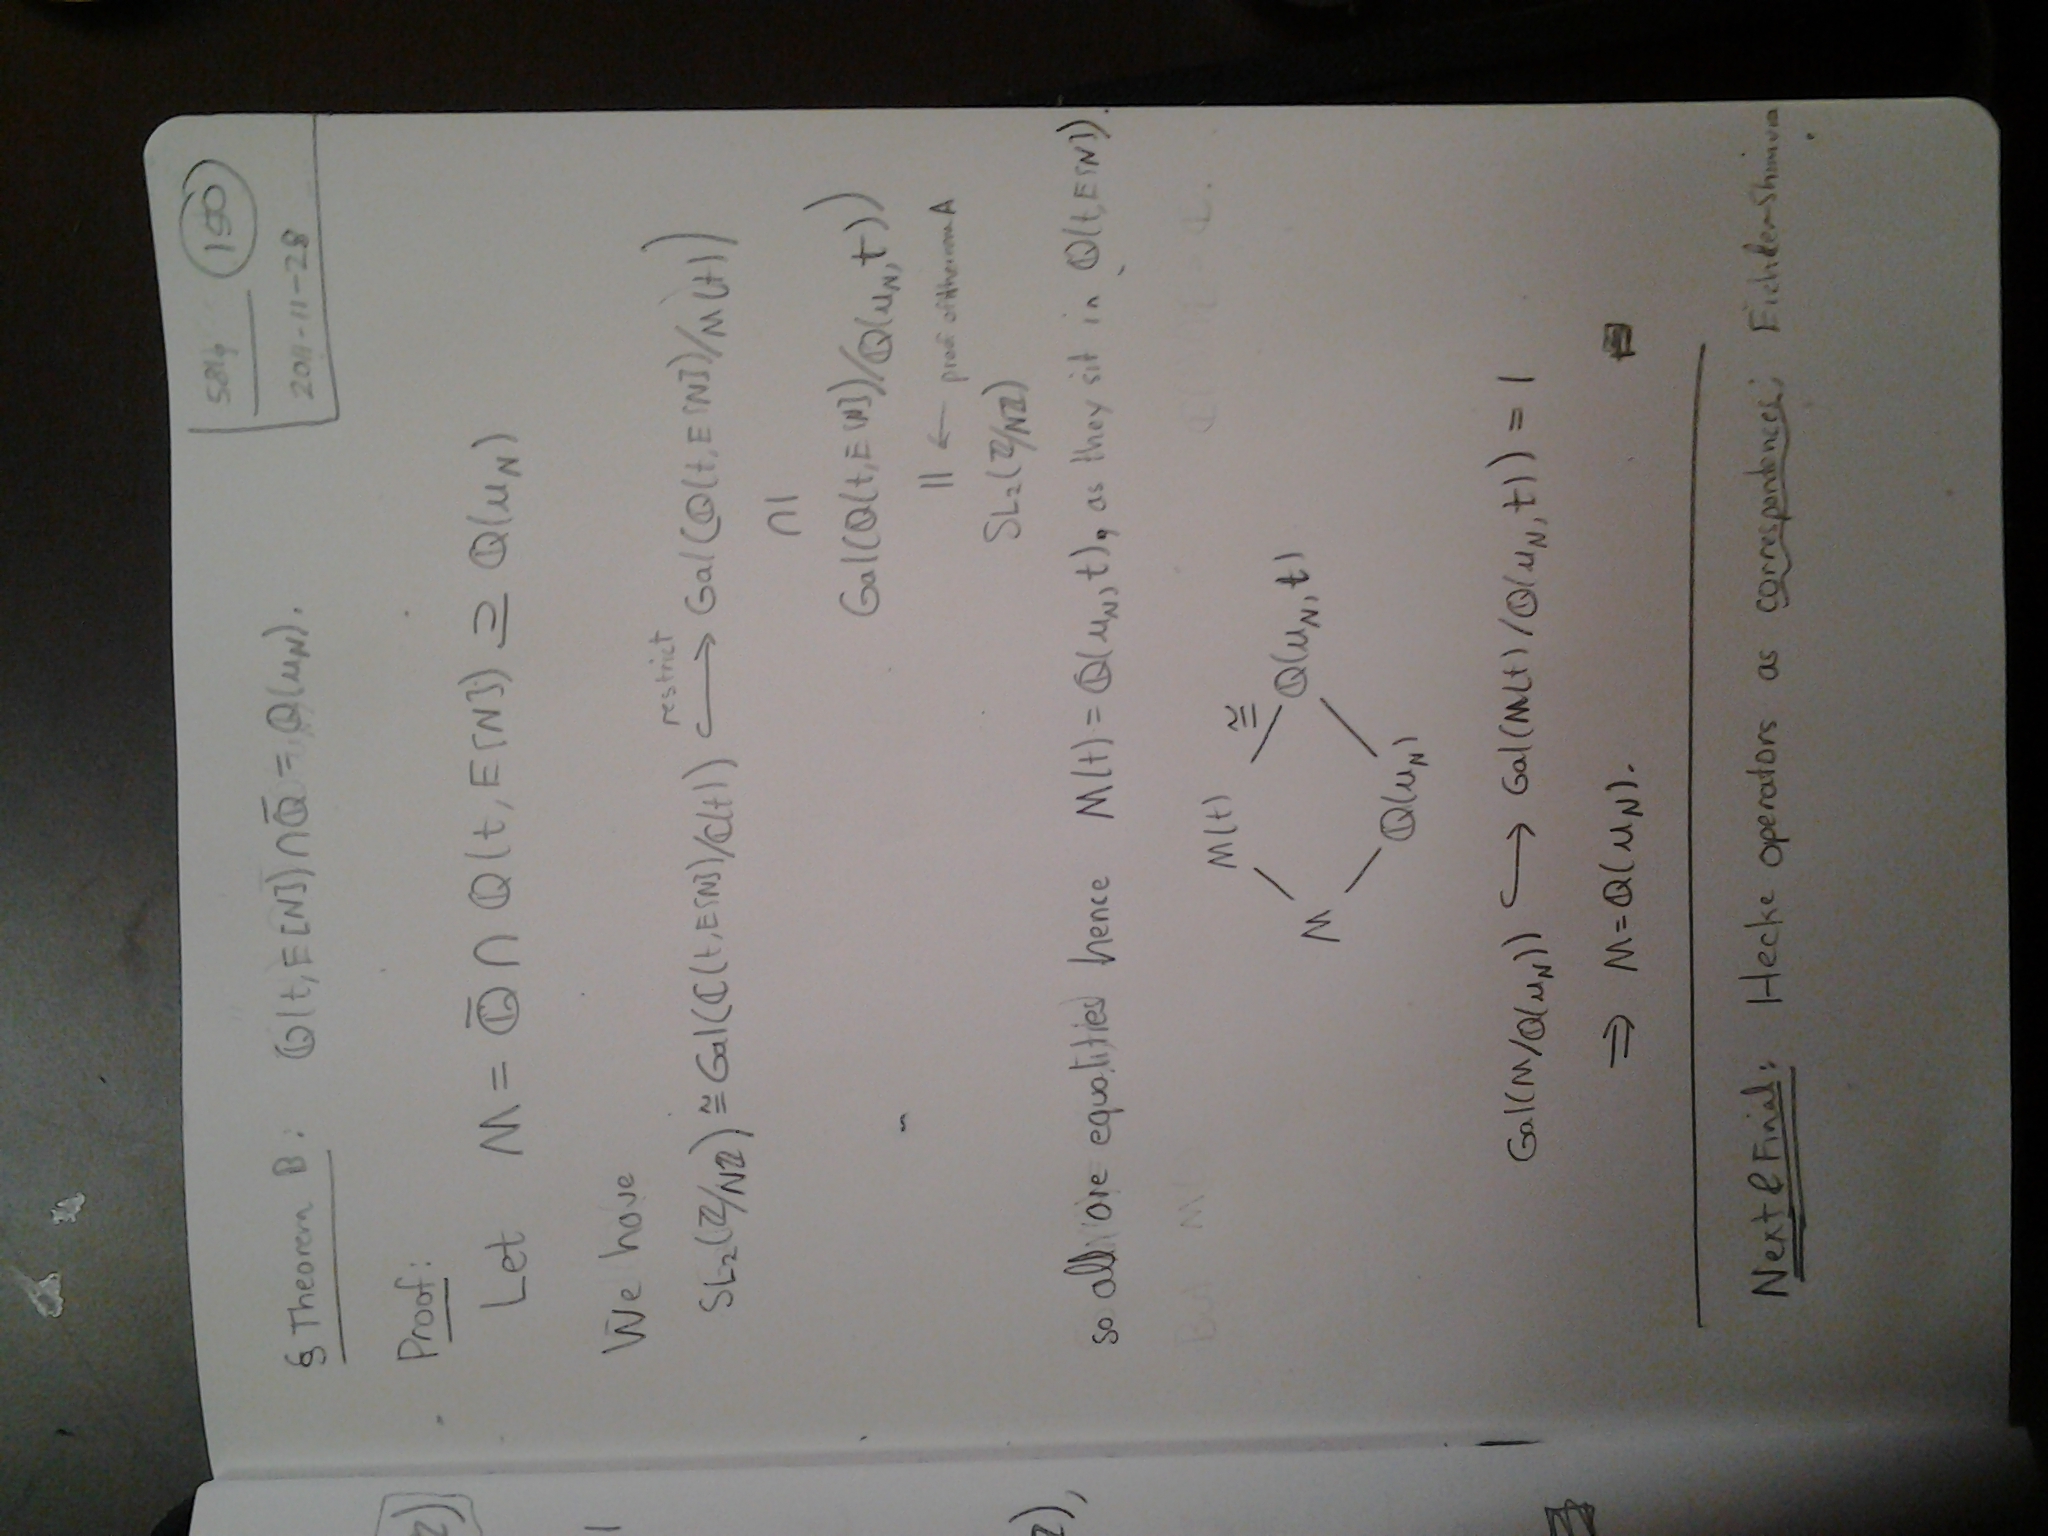 581g 150
2011-11-28
§ Theorem B: ℚ(t, E[N]) ∩ ℚ̄ = ℚ(μ_N).
Proof:
Let M = ℚ̄ ∩ ℚ(t, E[N]) ⊇ ℚ(μ_N)
We have
SL₂(ℤ/Nℤ) ≅ Gal(ℂ(t, E[N])/ℂ(t)) ↪ Gal(ℚ(t, E[N])/M(t))
restrict
∩|
Gal(ℚ(t, E[N])/ℚ(μ_N, t))
|| ← proof of theorem A
SL₂(ℤ/Nℤ)
so all are equalities hence M(t) = ℚ(μ_N, t), as they sit in ℚ(t, E[N]).
But M
M(t) ≅
M ℚ(μ_N, t)
ℚ(μ_N)
Gal(M/ℚ(μ_N)) ↪ Gal(M(t)/ℚ(μ_N, t)) = 1
⇒ M = ℚ(μ_N).
Next & Final: Hecke operators as correspondences; Eichler-Shimura